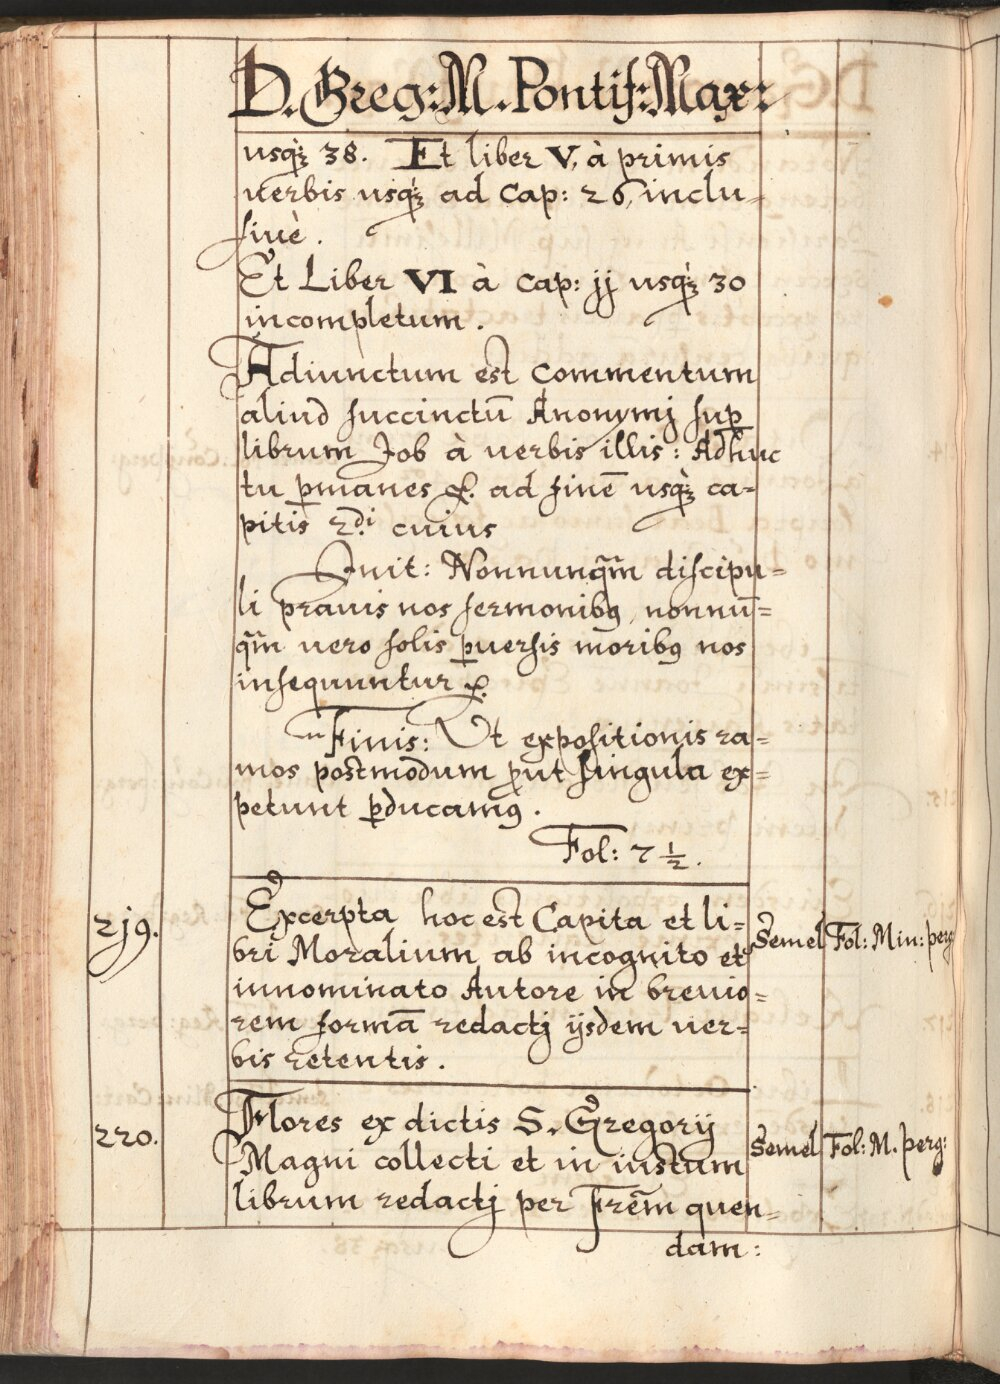 D. Greg: M. Pontif: Max:
usq́ꝫ 38. Et liber V, à primis
uerbis usq́ꝫ ad Cap: 26, inclu-
siuè.
Et Liber VI à Cap: jj usq́ꝫ 30
incompletum.
Adiunctum est Commentum
aliud succinctū Anonymj sup̲
librum Job à uerbis illis: Adhuc
tu ꝑmanes &. ad finē usq́ꝫ ca=
pitis 2di cuius
Init: Nonnunq̃m discipu=
li prauis nos sermonibꝰ, nonnū=
q̃m uero solis ꝑuersis moribꝰ nos
insequuntur &.
Finis: Ut expositionis ra=
mos postmodum ꝓut singula ex=
petunt ꝓducamꝰ.
Fol: 7 ½.
2j9.
Excerpta hoc est Capita et li=
bri Moralium ab incognito et
innominato Autore in breuio=
rem formā redactj ijsdem uer=
bis retentis.
Semel
Fol: Min: perg
220.
Flores ex dictis S. Gregorij
Magni collecti et in iustum
librum redactj per Frẽm quen=
dam:
Semel
Fol: M. perg: